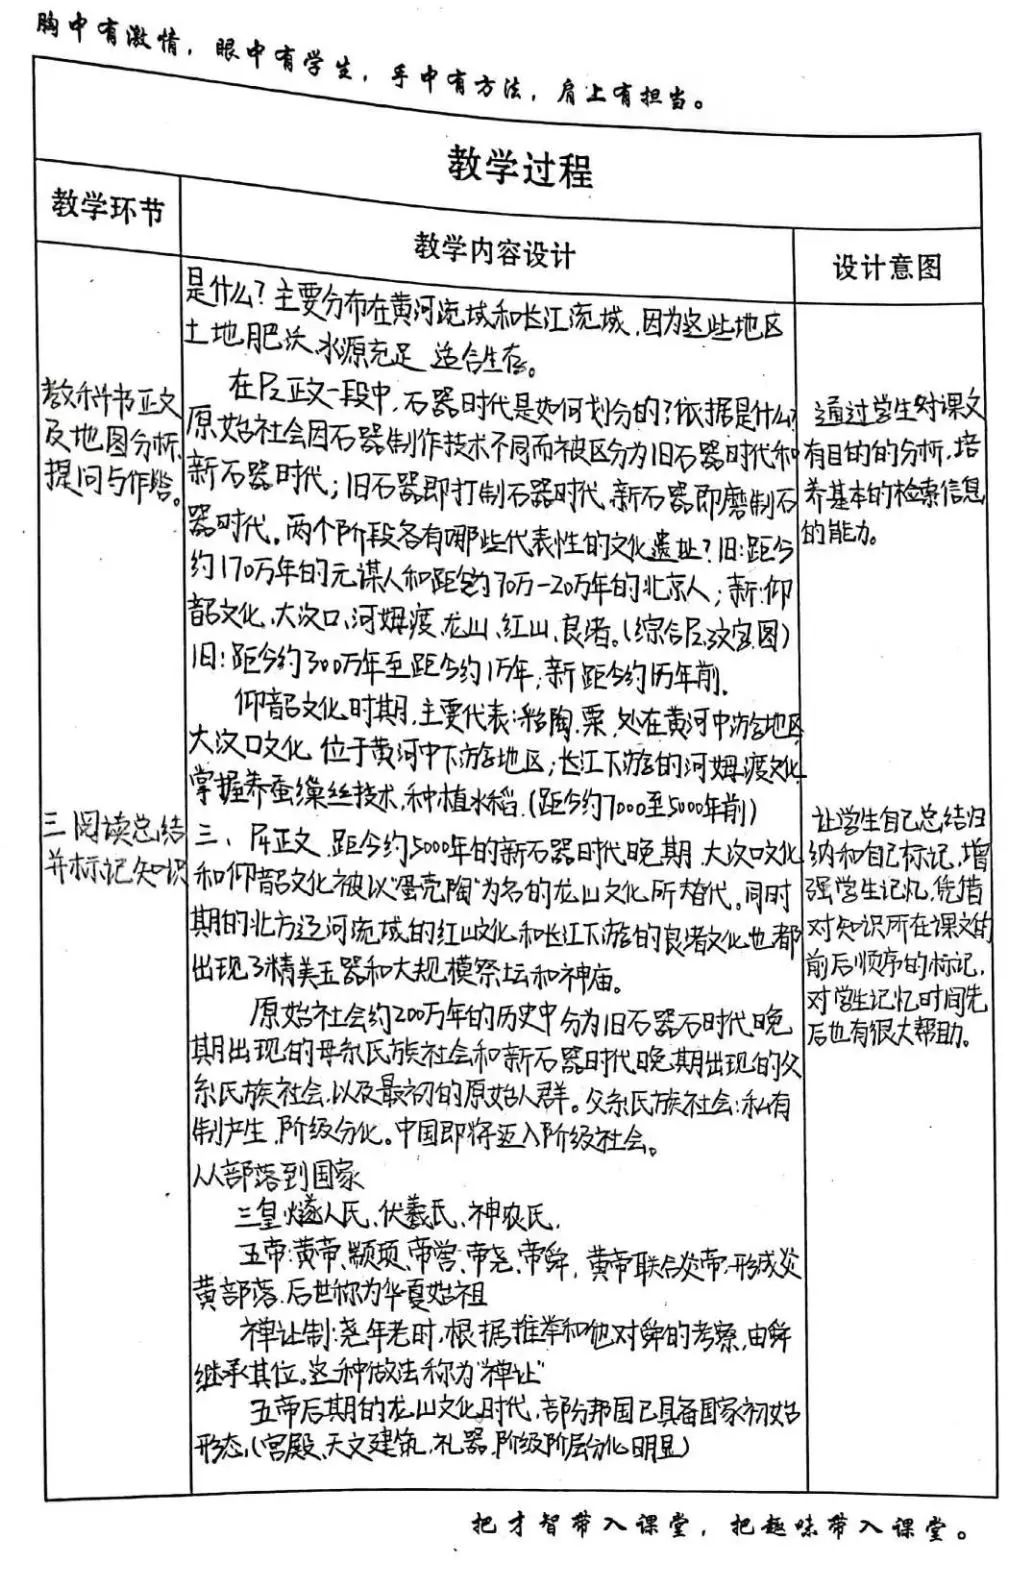 胸中有激情，眼中有学生，手中有方法，肩上有担当。
教学过程
教学环节
教学内容设计
设计意图
教科书正文
及地图分析,
提问与作答。
三 阅读总结
并标记知识
是什么？主要分布在黄河流域和长江流域,因为这些地区
土地肥沃、水源充足 适合生存。
在P2正文一段中,石器时代是如何划分的?依据是什么?
原始社会因石器制作技术不同而被区分为旧石器时代和
新石器时代；旧石器即打制石器时代,新石器即磨制石
器时代。两个阶段各有哪些代表性的文化遗址？旧:距今
约170万年的元谋人和距今约70万—20万年的北京人；新:仰
韶文化、大汶口、河姆渡、龙山、红山、良渚。(综合
旧：距今约300万年至距今约1万年,新 距今约1万年前.
仰韶文化时期,主要代表:彩陶、粟,处在黄河中游地区
大汶口文化 位于黄河中下游地区;长江下游的河姆渡文化
掌握养蚕缫丝技术,种植水稻.(距今约7000至5000年前)
三、 正文.距今约5000年的新石器时代晚期,大汶口文化
和仰韶文化被以“蛋壳陶”为名的龙山文化所替代。同时
期的北方辽河流域的红山文化和长江下游的良渚文化也都
出现了精美玉器和大规模祭坛和神庙。
原始社会约200万年的历史中分为旧石器石时代晚
期出现的母系氏族社会和新石器时代晚期出现的父
系氏族社会,以及最初的原始人群。父系氏族社会:私有
制产生,阶级分化。中国即将迈入阶级社会。
从部落到国家
三皇:燧人氏、伏羲氏、神农氏.
五帝:黄帝、颛顼、帝喾、帝尧、帝舜, 黄帝联合炎帝,形成炎
黄部落.后世称为华夏始祖
禅让制:尧年老时,根据推举和他对舜的考察,由舜
继承其位。这种做法称为“禅让”
五帝后期的龙山文化时代,部分邦国已具备国家初始
形态,(宫殿、天文建筑、礼器、阶级阶层分化明显)
通过学生对课文
有目的的分析,培
养基本的检索信息
的能力。
让学生自己总结归
纳和自己标记,增
强学生记忆,凭借
对知识所在课文的
前后顺序的标记,
对学生记忆时间先
后也有很大帮助。
把才智带入课堂，把趣味带入课堂。